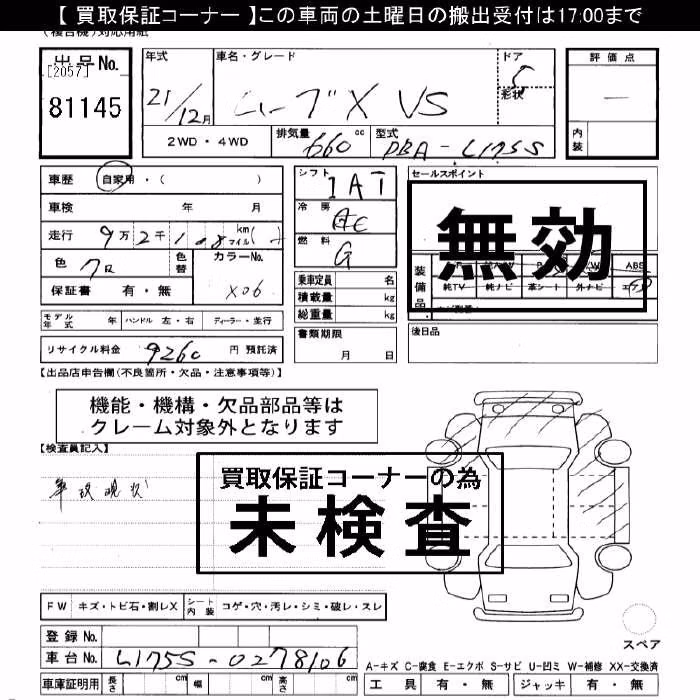 【 買取保証コーナー 】この車両の土曜日の搬出受付は17:00まで
(複合機)対応用紙
出品No.
[2057]
81145
年式
21/12月
車名・グレード
ムーブX VS
ドア
5
形状
評価点
—
内装
2WD・4WD
排気量
660 cc
型式
DBA-L175S
車歴
自家用・( )
車検
年 月
走行
9万2千1
km
マイル
色
クロ
色替
カラーNo.
X06
保証書 有・無
シフト
IAT
冷房
AC
燃料
G
乗車定員 名
積載量 kg
総重量 kg
書類期限
月 日
セールスポイント
無効
装備品
ABS
純TV
純ナビ
革シート
外ナビ
エアB
後日品
モデル年式 年
ハンドル 左・右
ディーラー・並行
リサイクル料金 9260 円 預託済
【出品店申告欄(不良箇所・欠品・注意事項等)】
機能・機構・欠品部品等は
クレーム対象外となります
【検査員記入】
買取保証コーナーの為
未検査
車改現状
FW キズ・トビ石・割レX
シート内装 コゲ・穴・汚レ・シミ・破レ・スレ
登録No.
車台No. L175S-0278106
車庫証明用 長さ cm 幅 cm 高さ cm
スペア
A-キズ C-腐食 E-エクボ S-サビ U-凹ミ W-補修 XX-交換済
工具 有・無 ジャッキ 有・無